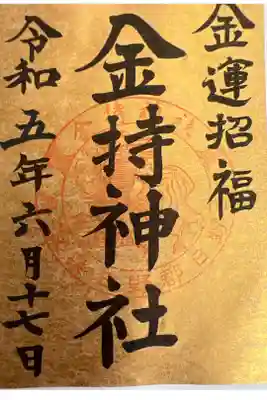 金運招福
金持神社
令和五年六月十七日